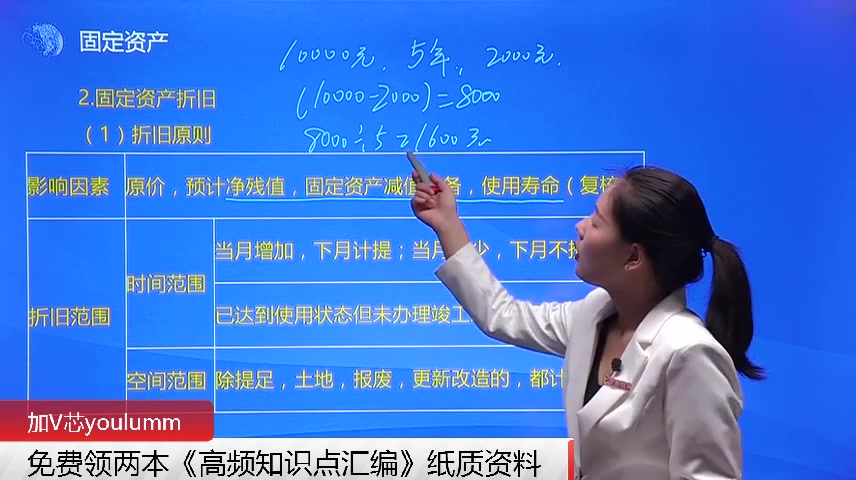 固定资产
10000元、5年，2000元.
2.固定资产折旧
(10000-2000)=8000
（1）折旧原则
8000÷5=1600元
影响因素 原价，预计净残值，固定资产减值 备，使用寿命（复核
折旧范围
时间范围
当月增加，下月计提；当月 少，下月不提
已达到使用状态但未办理竣工
空间范围
除提足，土地，报废，更新改造的，都计
加V芯youlumm
免费领两本《高频知识点汇编》纸质资料